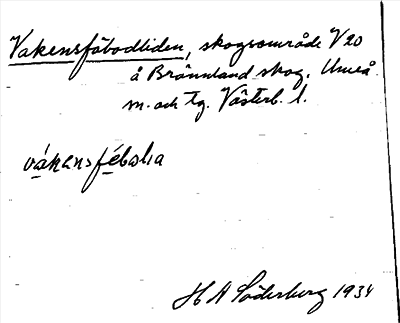 Vakensfäbodliden, skogsområde V20
å Brännland skog. Umeå
m. och tg. Västerb. l.
vákensfébɷlɩa
H A Söderberg 1934